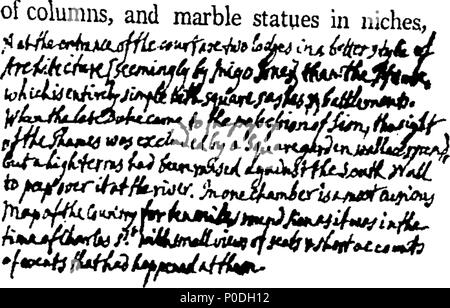 of columns, and marble statues in niches,
& at the entrance of the court are two lodges in a better style of
Architecture (seemingly by Inigo Jones) than the House,
which is entirely simple with square sashes & battlements.
When the late Duke came to the possession of Sion, the sight
of the Thames was excluded by a square garden in walls &
but a high terras had been raised against the South Wall
to peep over it at the river. In one chamber is a most curious
Map of the Country for ten miles round Sion as it was in the
time of Charles 1st. with small views of seats & short accounts
of events that had happened at them.
alamy
P0DH12